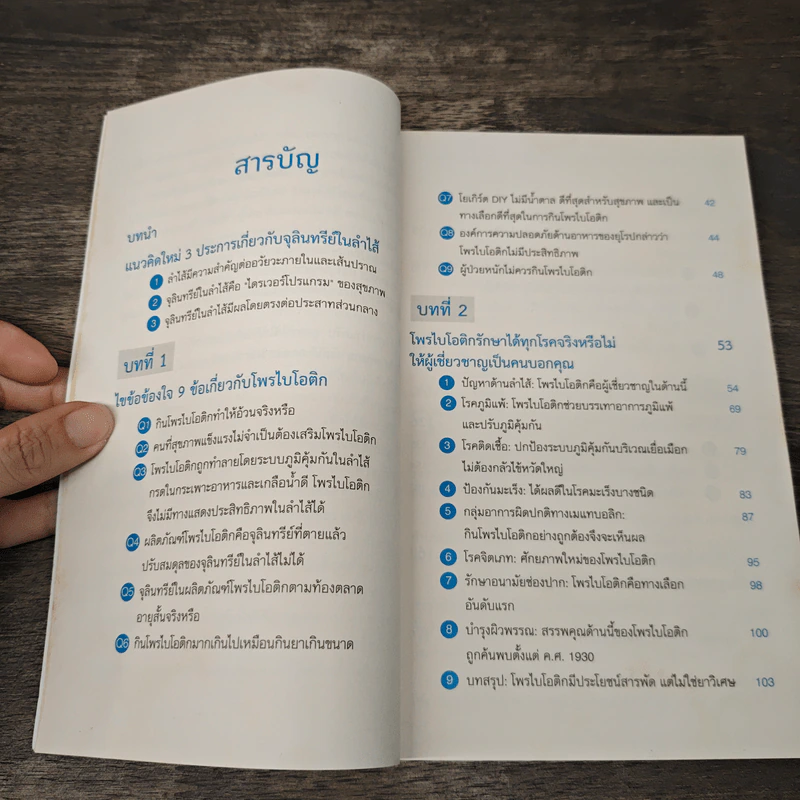 สารบัญ
บทนำ
แนวคิดใหม่ 3 ประการเกี่ยวกับจุลินทรีย์ในลำไส้
1 ลำไส้มีความสำคัญต่ออวัยวะภายในและเส้นปราณ
2 จุลินทรีย์ในลำไส้คือ "ไดรเวอร์โปรแกรม" ของสุขภาพ
3 จุลินทรีย์ในลำไส้มีผลโดยตรงต่อประสาทส่วนกลาง
บทที่ 1
ไขข้อข้องใจ 9 ข้อเกี่ยวกับโพรไบโอติก
Q1 กินโพรไบโอติกทำให้อ้วนจริงหรือ
Q2 คนที่สุขภาพแข็งแรงไม่จำเป็นต้องเสริมโพรไบโอติก
Q3 โพรไบโอติกถูกทำลายโดยระบบภูมิคุ้มกันในลำไส้
กรดในกระเพาะอาหารและเกลือน้ำดี โพรไบโอติก
จึงไม่มีทางแสดงประสิทธิภาพในลำไส้ได้
Q4 ผลิตภัณฑ์โพรไบโอติกคือจุลินทรีย์ที่ตายแล้ว
ปรับสมดุลของจุลินทรีย์ในลำไส้ไม่ได้
Q5 จุลินทรีย์ในผลิตภัณฑ์โพรไบโอติกตามท้องตลาด
อายุสั้นจริงหรือ
Q6 กินโพรไบโอติกมากเกินไปเหมือนกินยาเกินขนาด
Q7 โยเกิร์ต DIY ไม่มีน้ำตาล ดีที่สุดสำหรับสุขภาพ และเป็น 42
ทางเลือกดีที่สุดในการกินโพรไบโอติก
Q8 องค์การความปลอดภัยด้านอาหารของยุโรปกล่าวว่า 44
โพรไบโอติกไม่มีประสิทธิภาพ
Q9 ผู้ป่วยหนักไม่ควรกินโพรไบโอติก 48
บทที่ 2
โพรไบโอติกรักษาได้ทุกโรคจริงหรือไม่ 53
ให้ผู้เชี่ยวชาญเป็นคนบอกคุณ
1 ปัญหาด้านลำไส้: โพรไบโอติกคือผู้เชี่ยวชาญในด้านนี้ 54
2 โรคภูมิแพ้: โพรไบโอติกช่วยบรรเทาอาการภูมิแพ้ 69
และปรับภูมิคุ้มกัน
3 โรคติดเชื้อ: ปกป้องระบบภูมิคุ้มกันบริเวณเยื่อเมือก 79
ไม่ต้องกลัวไข้หวัดใหญ่
4 ป้องกันมะเร็ง: ได้ผลดีในโรคมะเร็งบางชนิด 83
5 กลุ่มอาการผิดปกติทางเมแทบอลิก: 87
กินโพรไบโอติกอย่างถูกต้องจึงจะเห็นผล
6 โรคจิตเภท: ศักยภาพใหม่ของโพรไบโอติก 95
7 รักษาอนามัยช่องปาก: โพรไบโอติกคือทางเลือก 98
อันดับแรก
8 บำรุงผิวพรรณ: สรรพคุณด้านนี้ของโพรไบโอติก 100
ถูกค้นพบตั้งแต่ ค.ศ. 1930
9 บทสรุป: โพรไบโอติกมีประโยชน์สารพัด แต่ไม่ใช่ยาวิเศษ 103